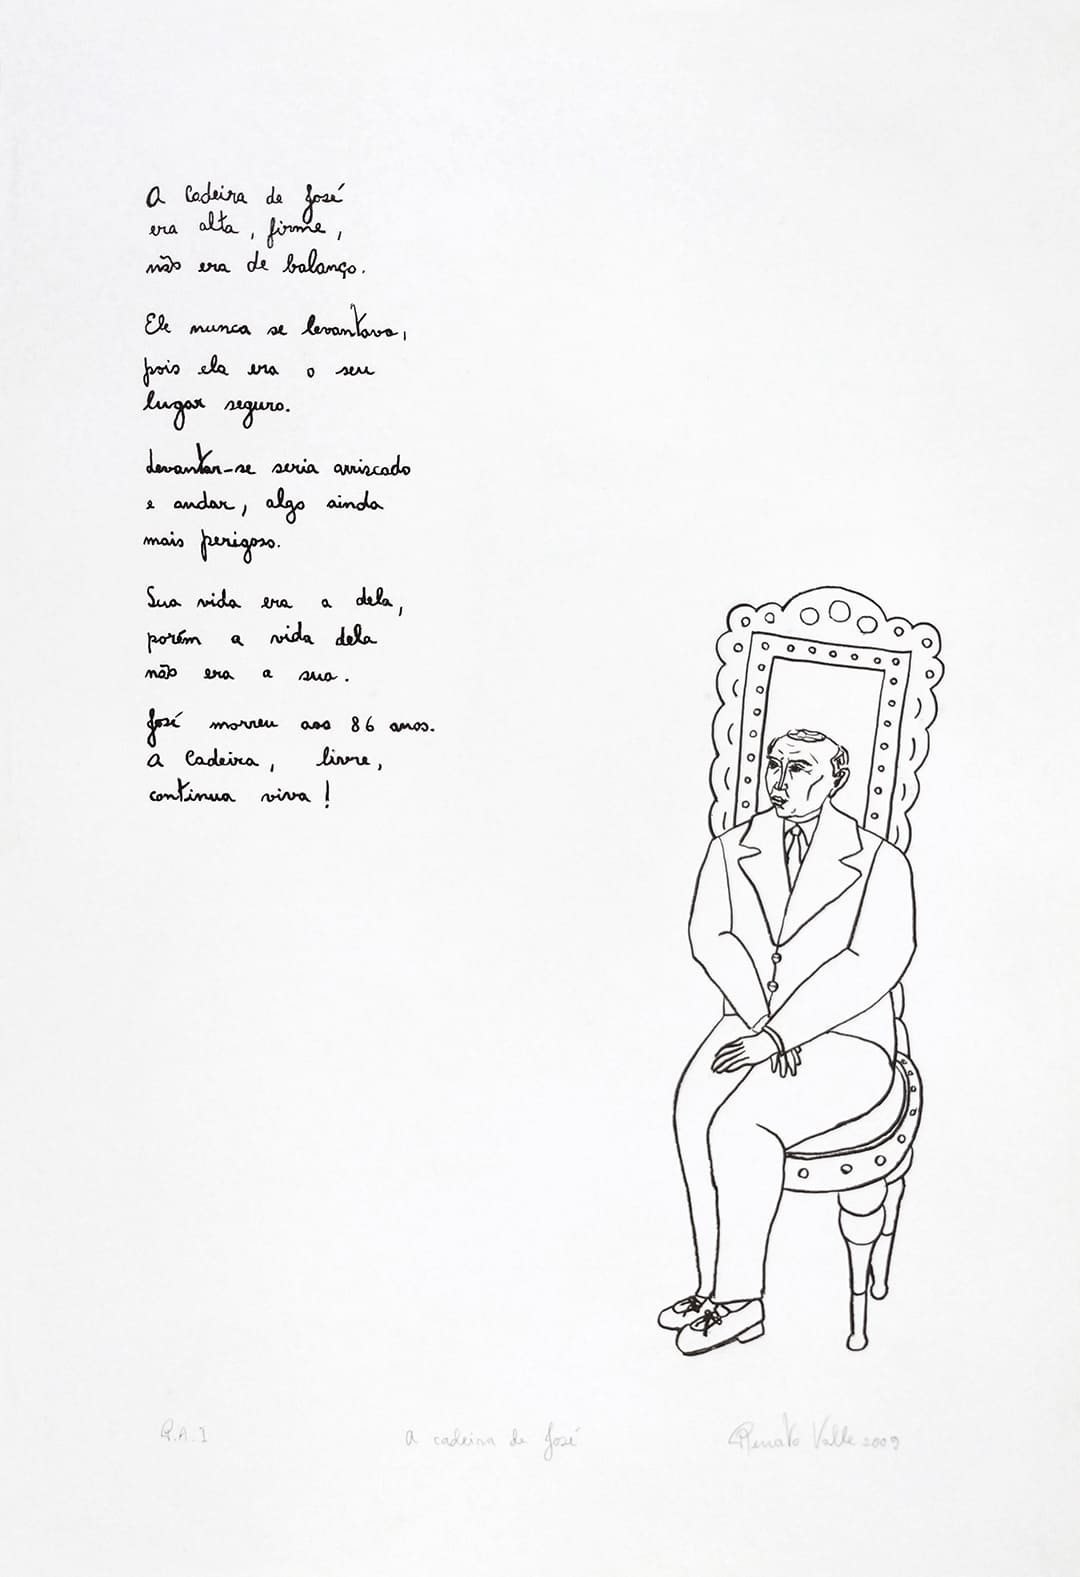 A cadeira de José
era alta, firme,
não era de balanço.
Ele nunca se levantava,
pois ela era o seu
lugar seguro.
Levantar-se seria arriscado
e andar, algo ainda
mais perigoso.
Sua vida era a dela,
porém a vida dela
não era a sua.
José morreu aos 86 anos.
A cadeira, livre,
continua viva!
P.A.I
A cadeira de José
Renato Valle 2009